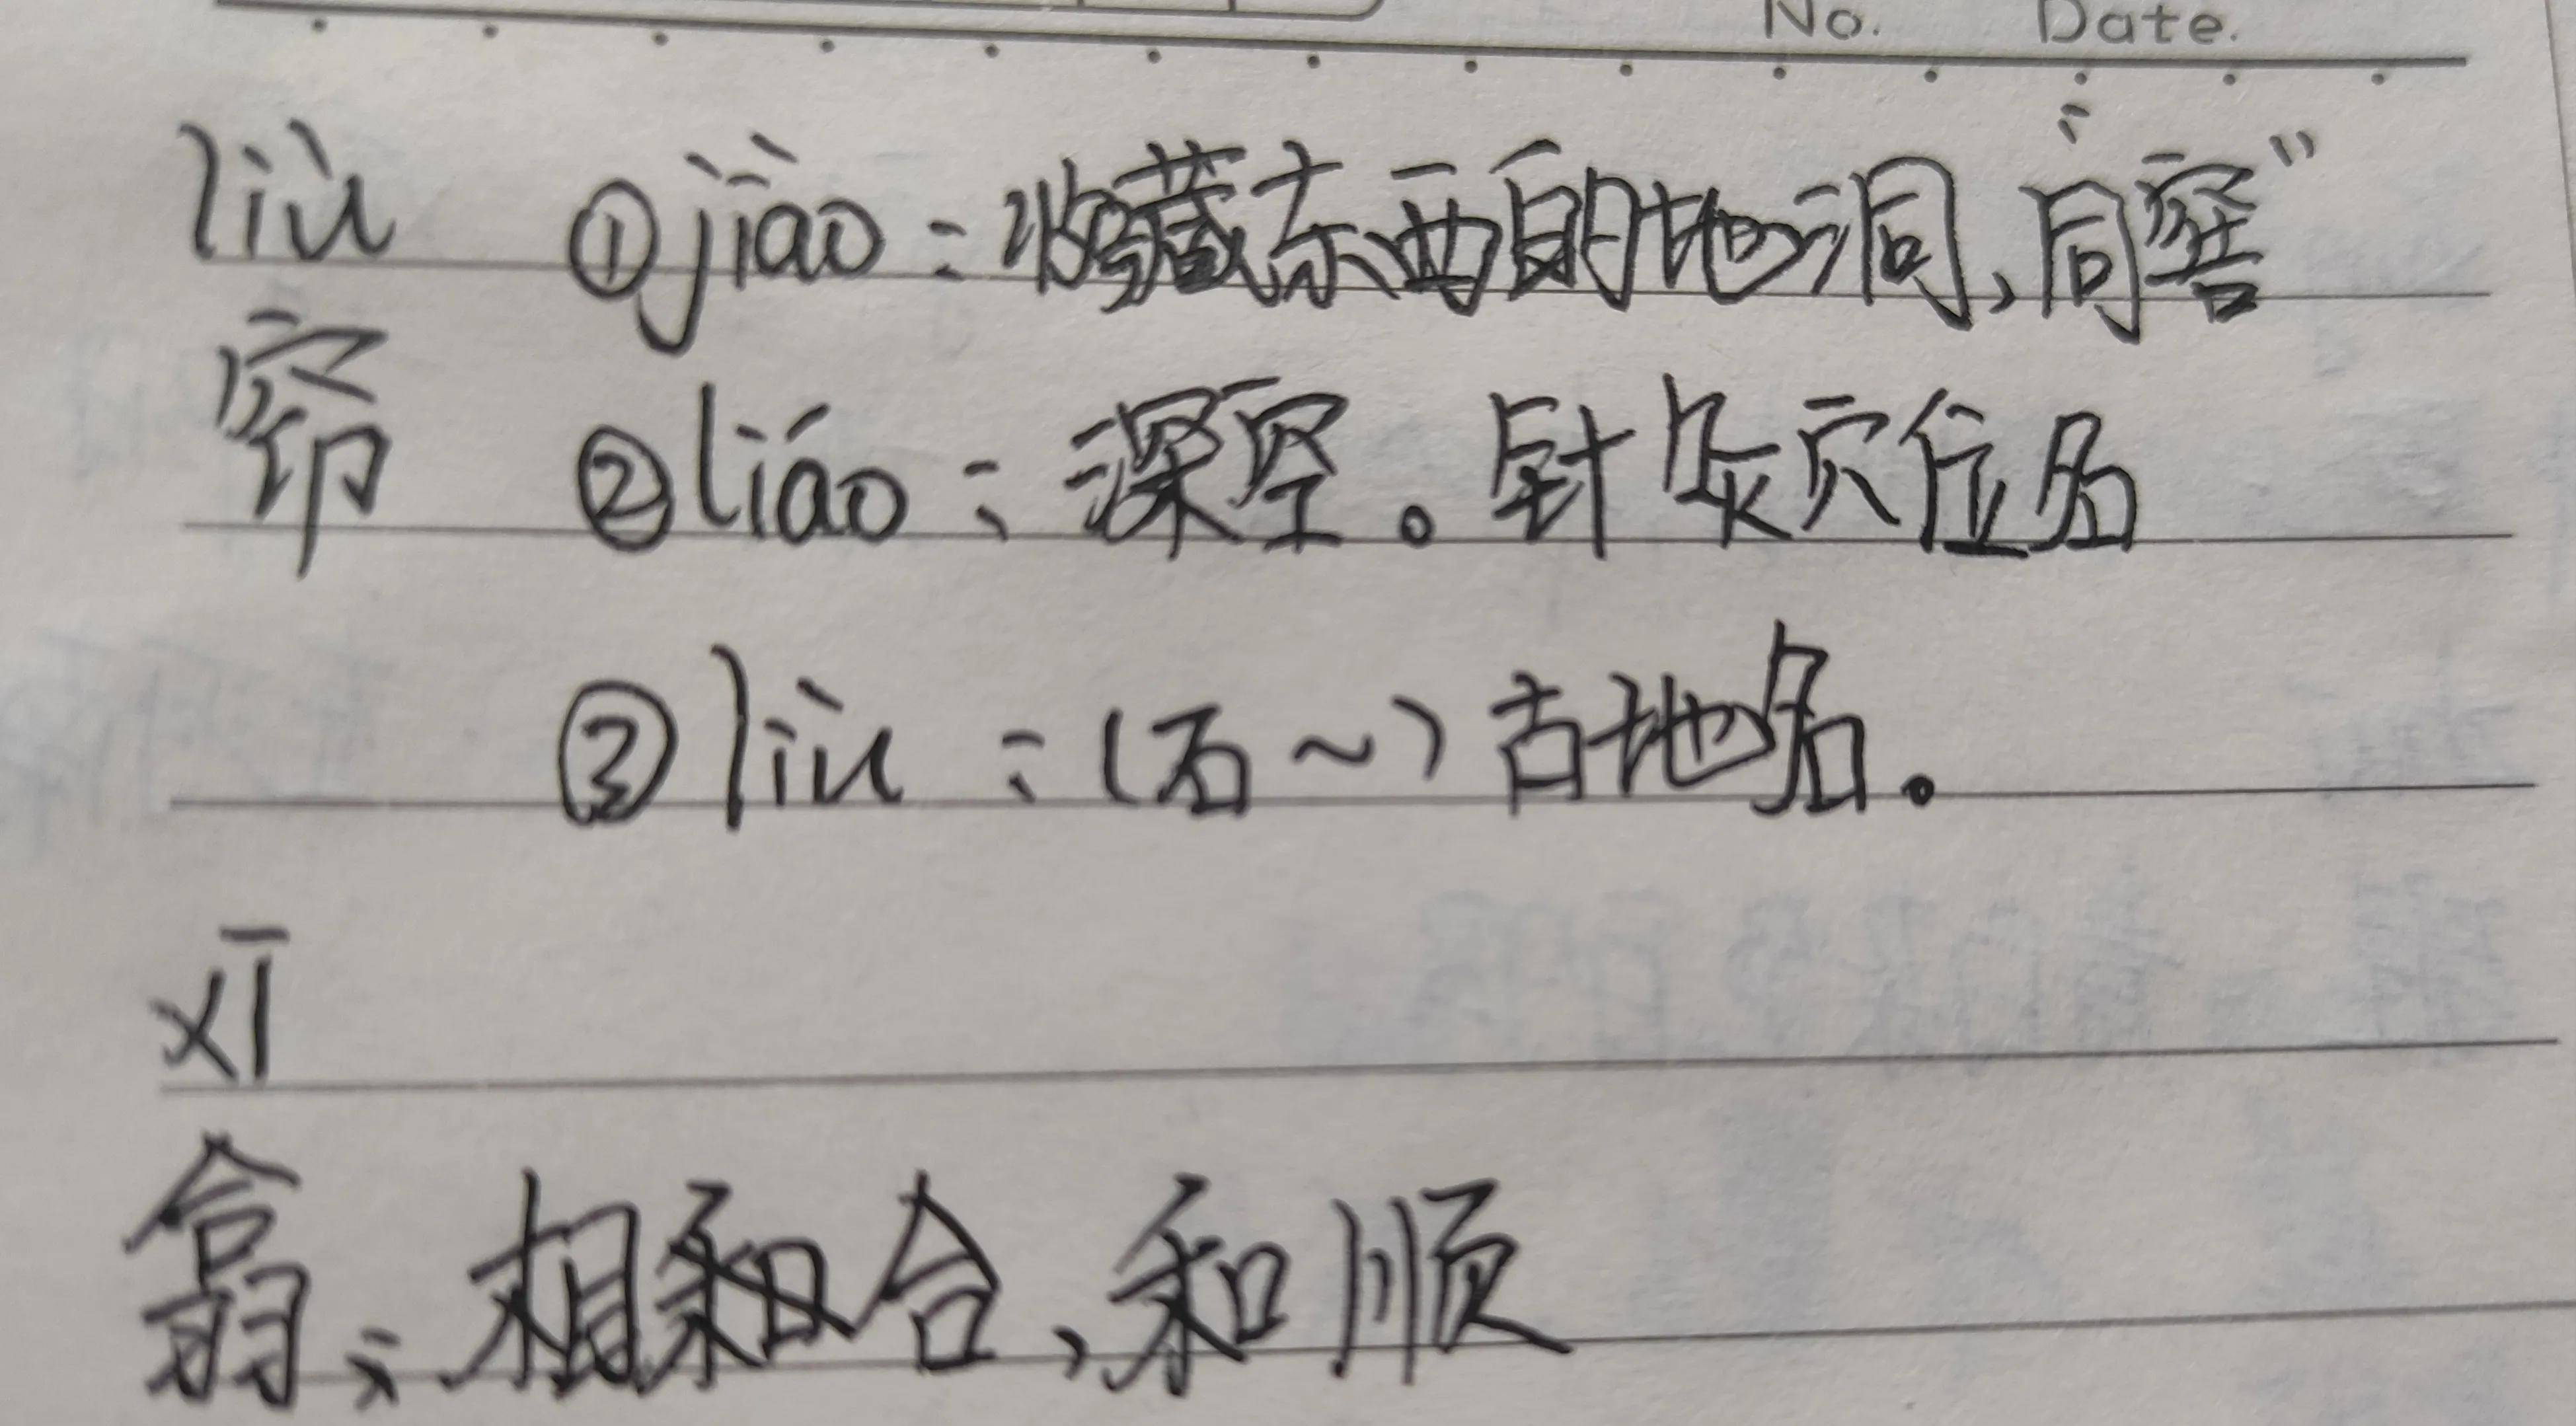 No. Date.
liù ①jiào：收藏东西的地洞，同“窖”
窌 ②liáo：深空。针灸穴位名
③liù：(石～)古地名。
xī
翕：相和合，和顺